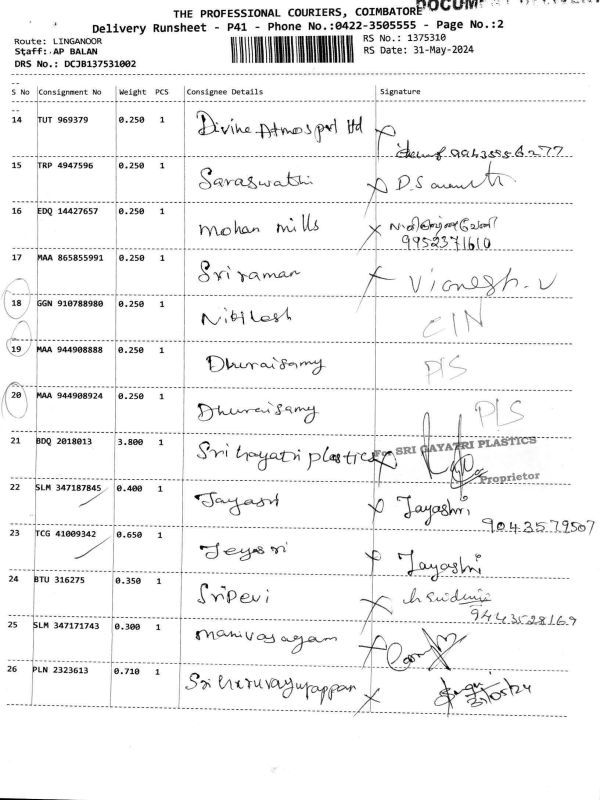 THE PROFESSIONAL COURIERS, COIMBATORE
Delivery Runsheet - P41 - Phone No.:0422-3505555 - Page No.:2
Route: LINGANOOR
Staff: AP BALAN
DRS No.: DCJB137531002
RS No.: 1375310
RS Date: 31-May-2024
S No Consignment No Weight PCS Consignee Details Signature
14 TUT 969379 0.250 1 Divine Atmospel ltd
15 TRP 4947596 0.250 1 Saraswathi
16 EDQ 14427657 0.250 1 mohan mills
9952371610
17 MAA 865855991 0.250 1 Sriraman X Vignesh. V
18 GGN 910788980 0.250 1 Nikilesh CIN
19 MAA 944908888 0.250 1 Dhuraisamy
20 MAA 944908924 0.250 1 Dhuraisamy PLS
21 BDQ 2018013 3.800 1 Sri Gayatri plastics X For SRI GAYATRI PLASTICS
Proprietor
22 SLM 347187845 0.400 1 Jayasri X Jayashri
9043579507
23 TCG 41009342 0.650 1 Jeyasri X Jayashri
24 BTU 316275 0.350 1 Sridevi X
9443528169
25 SLM 347171743 0.300 1 manivasagam X
26 PLN 2323613 0.710 1 Sri Guruvayurappan X
31/05/24